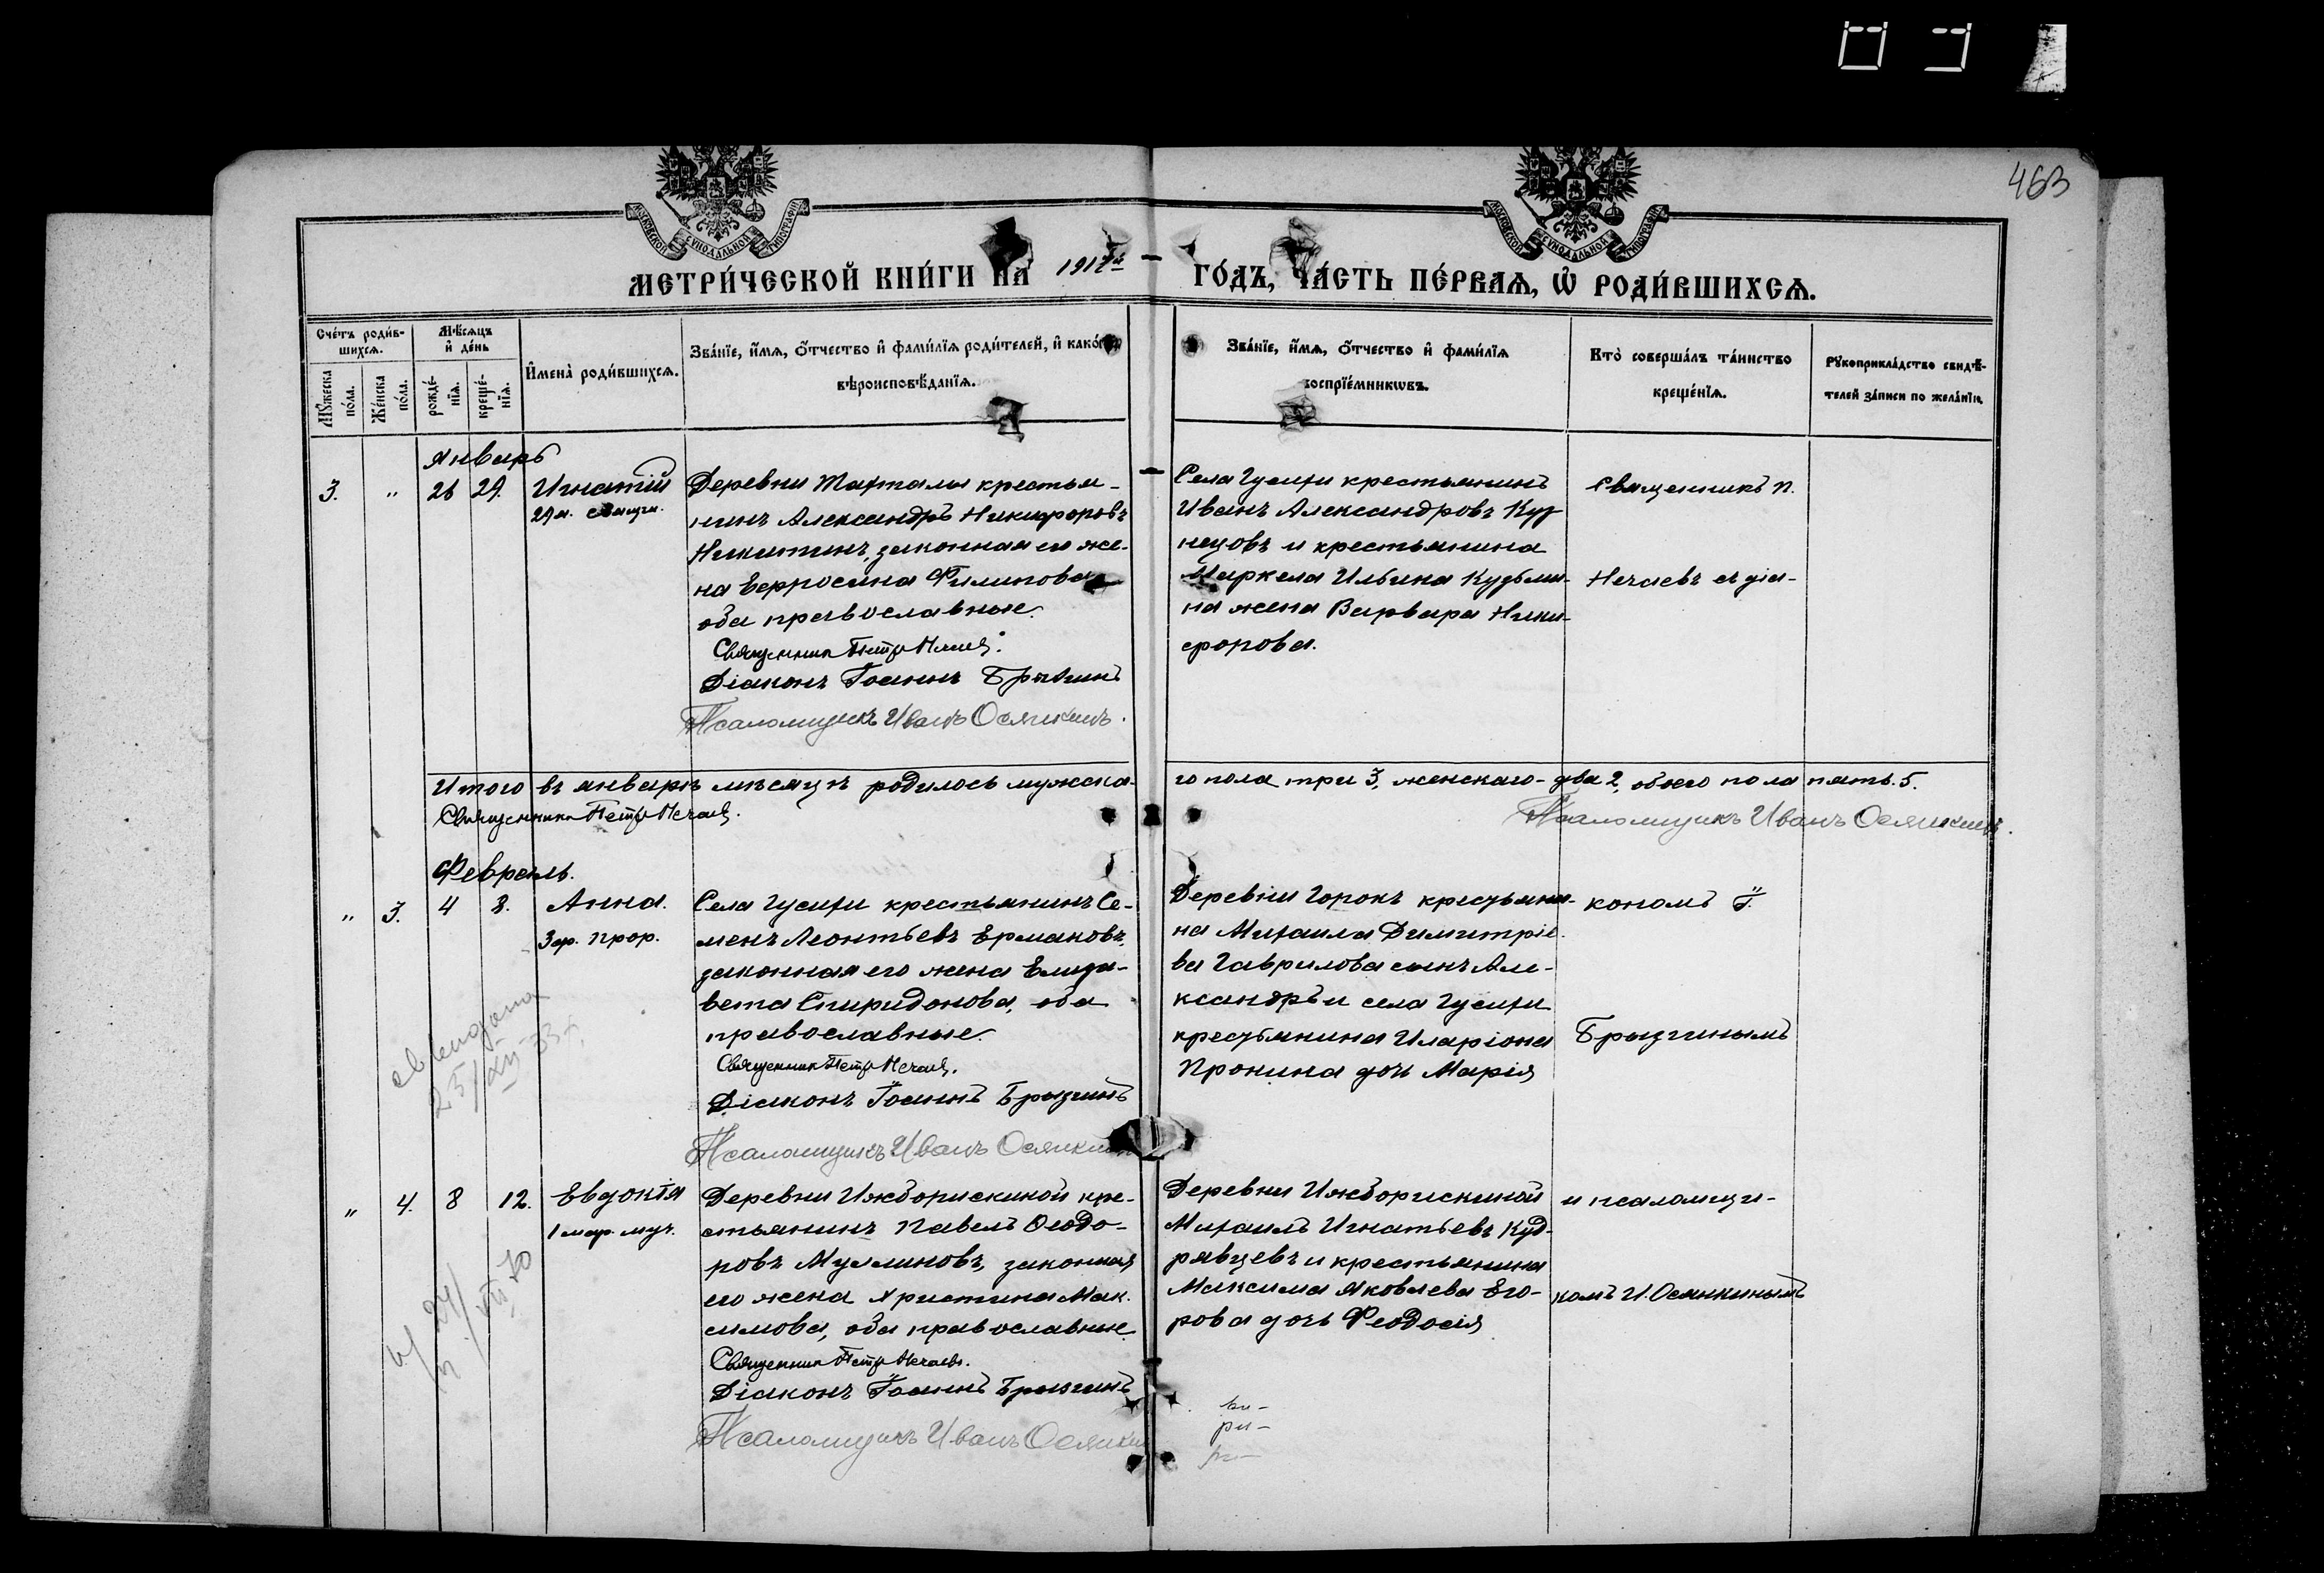 463
МОСКОВСКОЙ СѴНОДАЛЬНОЙ ТИПОГРАФІИ
МОСКОВСКОЙ СѴНОДАЛЬНОЙ ТИПОГРАФІИ
МЕТРИ́ЧЕСКОЙ КНИ́ГИ НА 1917й ГО́ДЪ, ЧА́СТЬ ПЕ́РВАѦ, Ѡ РОДИ́ВШИХСѦ.
Сче́тъ роди́в-
шихсѧ.
Мѹ́жеска по́ла.
Же́нска по́ла.
Мѣ́сѧцъ
и де́нь
рожде́-нїѧ.
креще́-нїѧ.
Имена̀ роди́вшихсѧ.
Зва́нїе, и́мѧ, о́тчество и фами́лїѧ роди́телей, и како́
вѣроисповѣ́данїѧ.
Зва́нїе, и́мѧ, о́тчество и фами́лїѧ
воспрїе́мникѡвъ.
Кто̀ соверша́лъ та́инство
креще́нїѧ.
Рꙋкоприкла́дство свидѣ́-
телей за́писи по жела́нїю.
Январь
3. " 26 29. Игнатій
29 я. священ.
Деревни Тархталы крестья-
нинъ Александръ Никифоровъ
Никитинъ, законная его же-
на Евфросина Филипова
оба православные.
Священникъ Петръ Нечаевъ.
Діаконъ Іоаннъ Брызгинъ
Псаломщикъ Иванъ Осянкинъ.
Села Гусихи крестьянинъ
Иванъ Александровъ Куз
нецовъ и крестьянина
Маркела Ильина Кузьми-
на жена Варвара Ники-
форова.
Священникъ П.
Нечаевъ съ діа-
Итого въ январѣ мѣсяцѣ родилось мужска-го пола три 3, женскаго - два 2, обоего пола пять. 5.
Священникъ Петръ Нечаевъ.
Псаломщикъ Иванъ Осянкинъ.
Февраль.
" 3. 4 8. Анна.
3 ф. прор.
Села Гусихи крестьянинъ Се-
менъ Леонтьевъ Ермаковъ,
законная его жена Елиза-
вета Спиридонова, оба
православные.
Священникъ Петръ Нечаевъ.
Діаконъ Іоаннъ Брызгинъ
Псаломщикъ Иванъ Осянкин
Деревни Горокъ крестьяни-
на Михаила Димитріе-
ва Гаврилова сынъ Але-
ксандръ и села Гусихи
крестьянина Иларіона
Пронина дочь Марія
кономъ І.
Брызгинымъ
" 4. 8 12. Евдокія
1 мар. муч.
Деревни Ижборискиной кре-
стьянинъ Павелъ Ѳеодо-
ровъ Муллиновъ, законная
его жена Христина Мак-
симова, оба православные.
Священникъ Петръ Нечаевъ.
Діаконъ Іоаннъ Брызгинъ
Псаломщикъ Иванъ Осянкин
Деревни Ижборискиной
Михаилъ Игнатьевъ Куд-
рявцевъ и крестьянина
Максима Яковлева Его-
рова дочь Феодосія
и псаломщи-
комъ И. Осянкинымъ
ри-